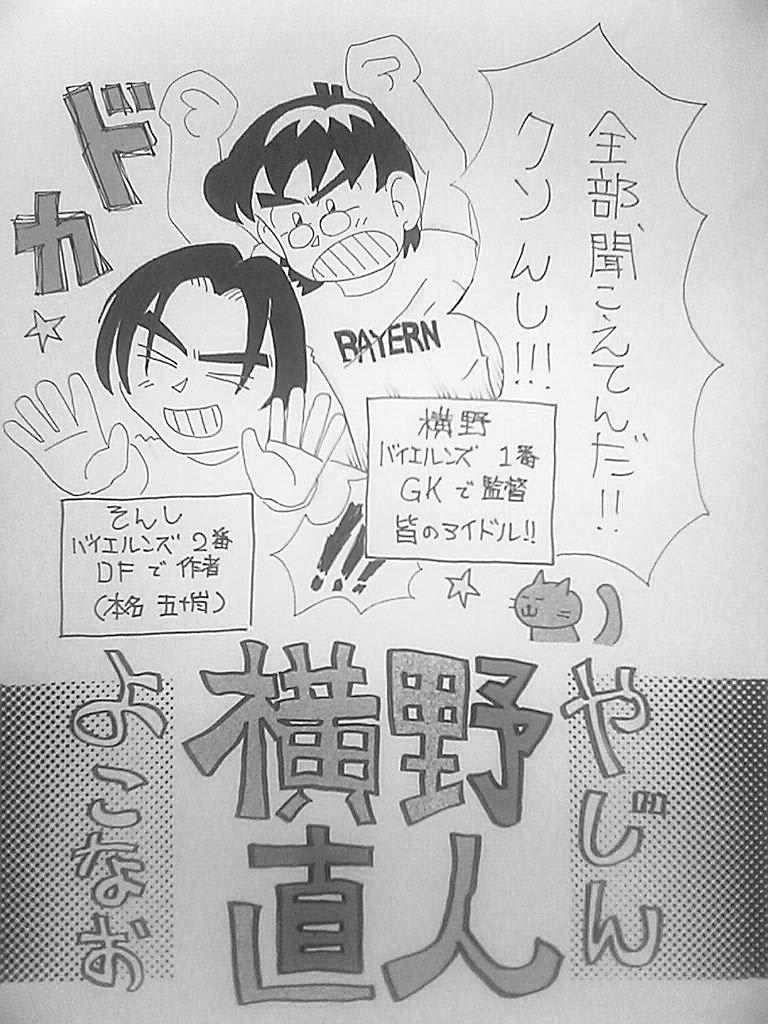 全部、聞こえてんだ!!
クソんし!!!
ドカ
BAYERN
横野
バイエルンズ 1番
GKで監督
皆のアイドル!!
そんし
バイエルンズ 2番
DFで作者
(本名 五十嵐)
!!!
横野
直人
やじん
よこなお